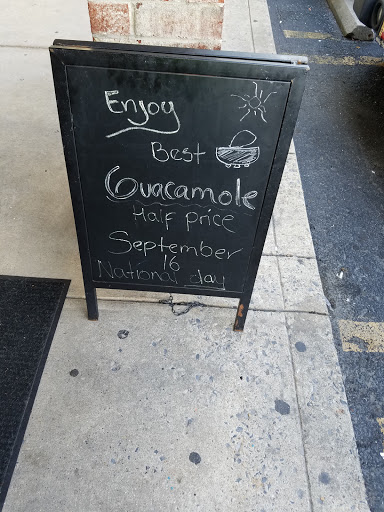 Enjoy
Best
Guacamole
Half price
September
16
National day